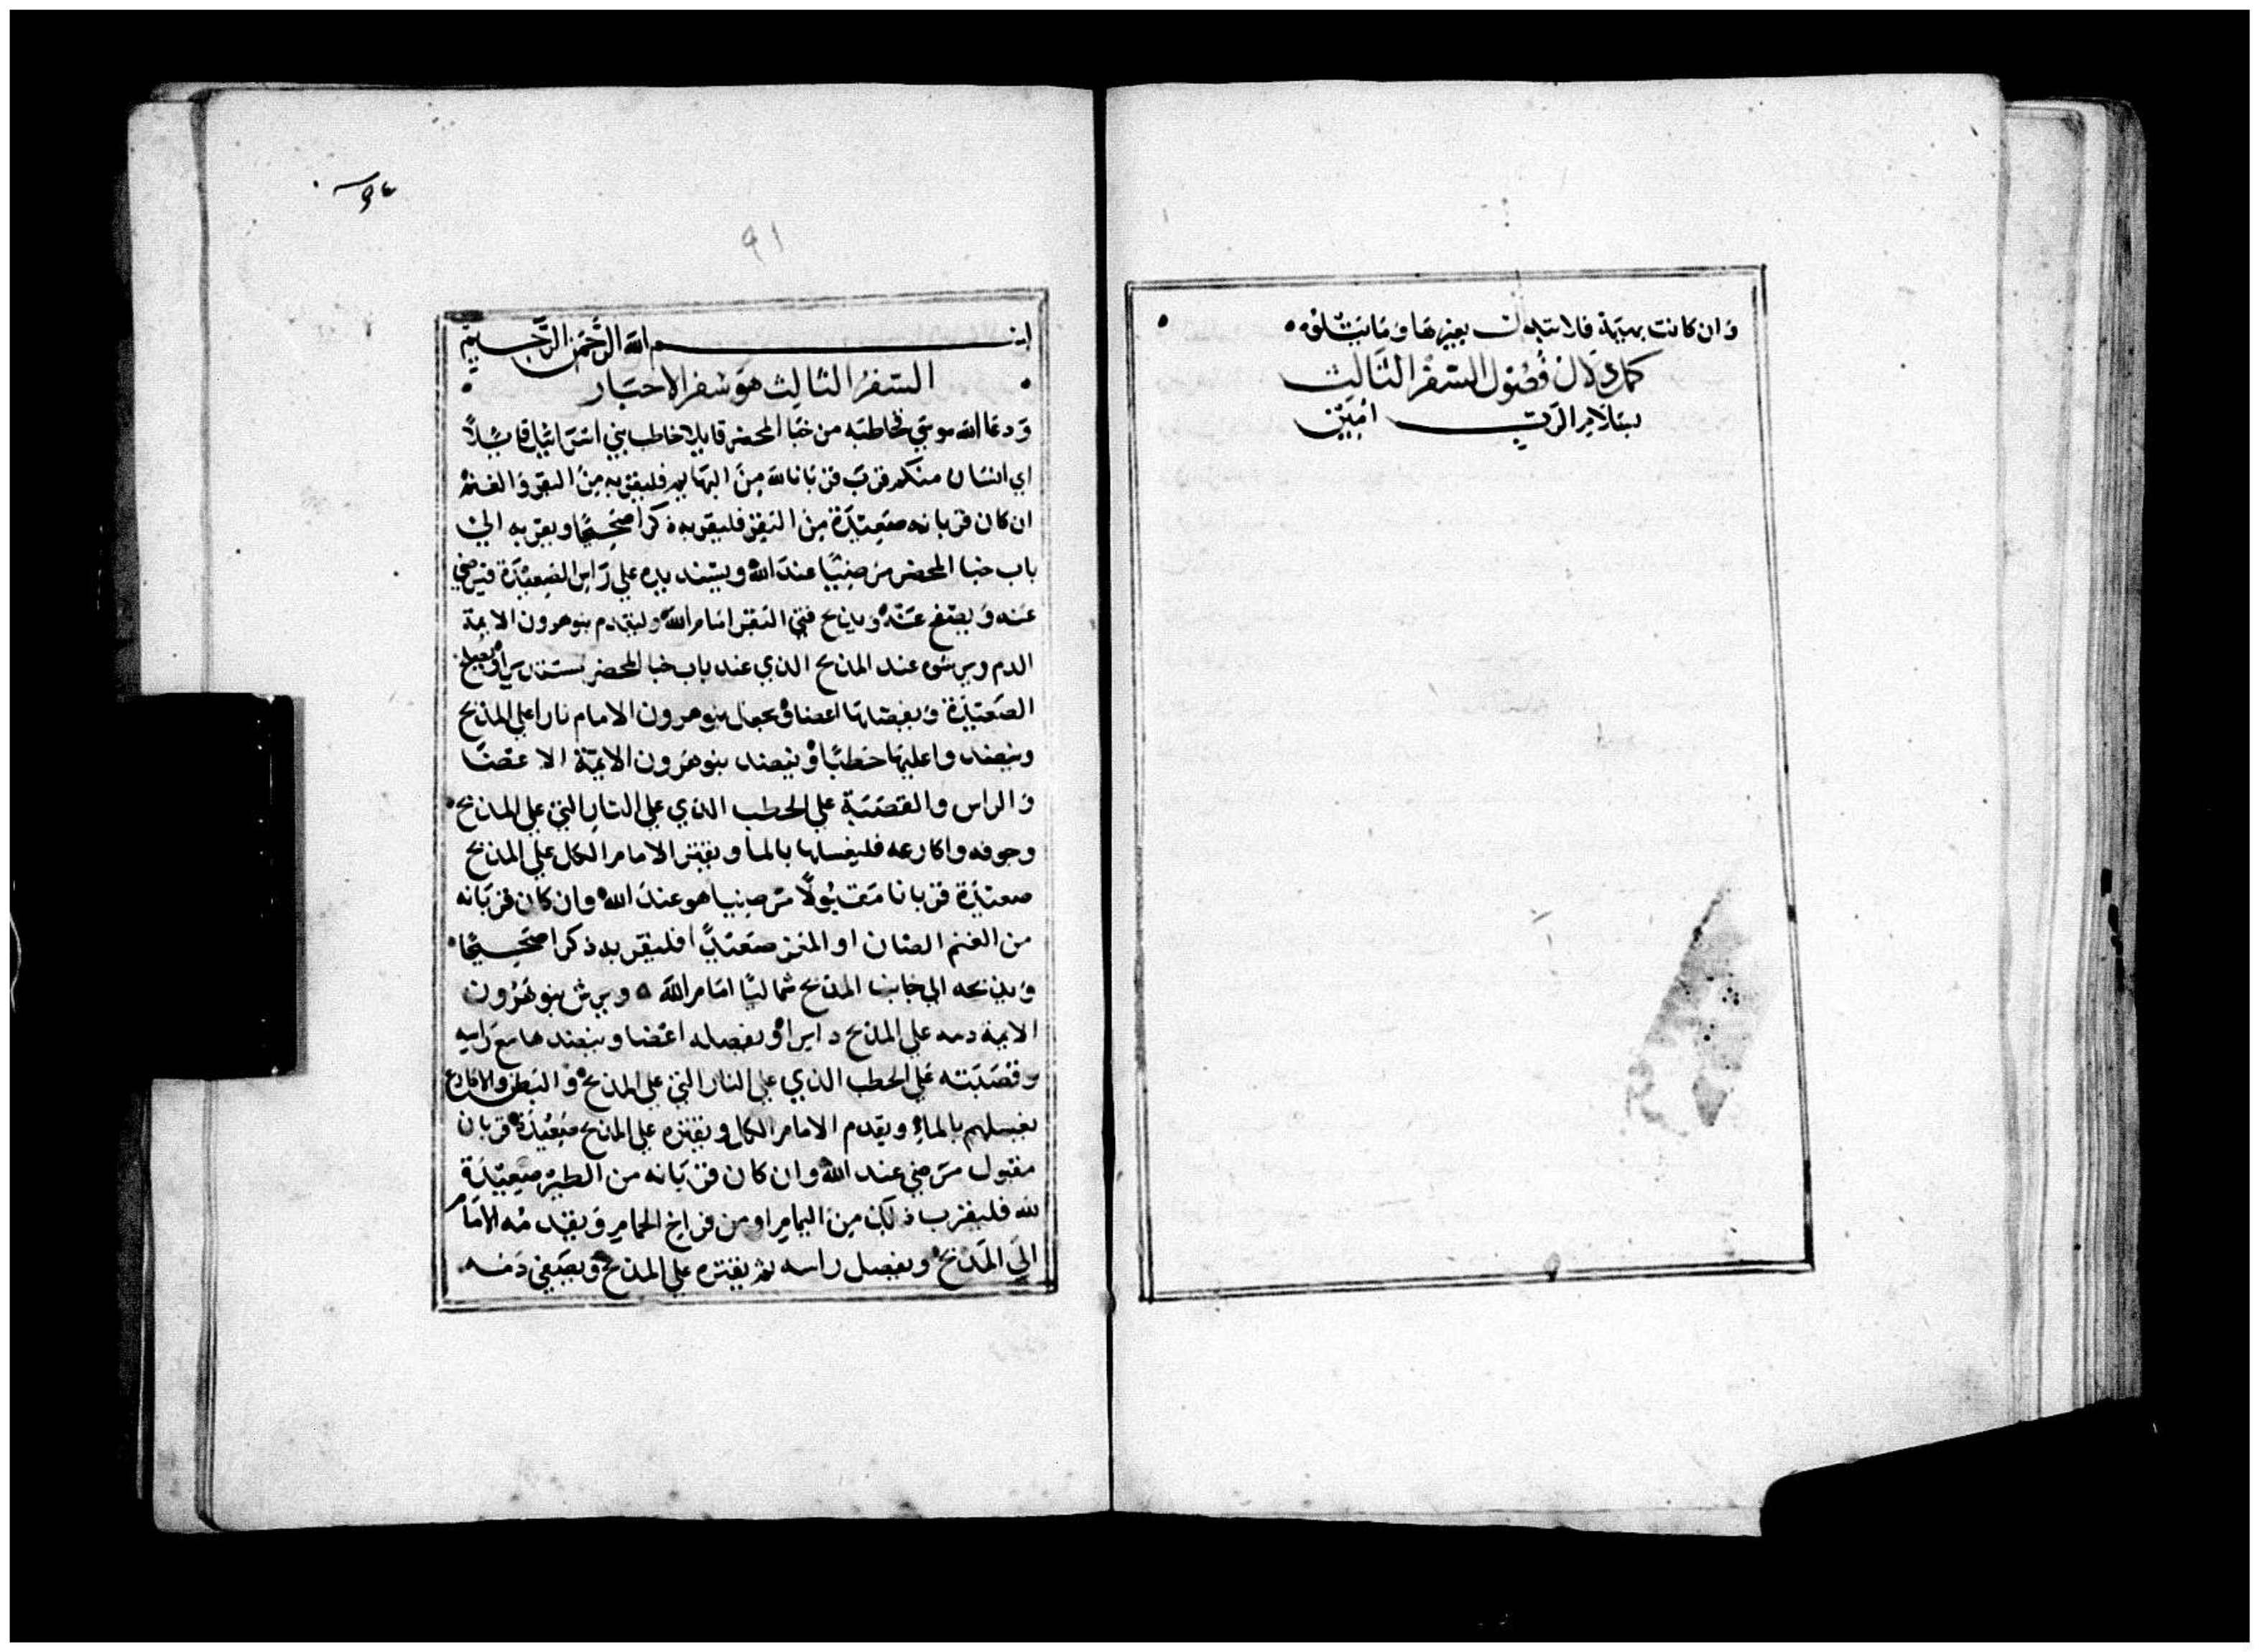 وان كانت بهيمة فلا تبدل بغيرها وما يتلوه
كمل دلال فصول السفر الثالث
بسلام الرب امين
91
بسم الله الرحمن الرحيم
السفر الثالث هو سفر الاحبار
ودعا الله موسي مخاطبه من خبا المحضر قايلا خاطب بني اسرائيل قائيلا
اي انسان منكم قرب قربانا لله من البهايم فليقربه من البقر والغنم
ان كان قربانه صعيدة من البقر فليقربه ذكرا صحيحا ويقربه الي
باب خبا المحضر مرضيا عند الله ويسند يده علي راس الصعيدة فيرضي
عنه ويصفح عنه ويذبح فتي البقر امام الله وليقدم بنو هرون الايمة
الدم ويرشوه عند المذبح الذي عند باب خبا المحضر مستديرا ويسلخ
الصعيدة ويفصلها اعضا ويجعل بنو هرون الامام نارا علي المذبح
وينضدوا عليها حطبا وينضد بنو هرون الايمة الاعضا
والراس والقصبة علي الحطب الذي علي النار التي علي المذبح
وجوفه واكارعه فليغسلها بالما ويقتر الامام الكل علي المذبح
صعيدة قربانا مقبولا مرضيا هو عند الله وان كان قربانه
من الغنم الضان او المعز صعيدا فليقربه ذكرا صحيحا
ويذبحه الي جانب المذبح شماليا امام الله ويرش بنو هرون
الايمة دمه علي المذبح دايرا ويفصله اعضا وينضدها مع راسه
وقصبته علي الحطب الذي علي النار التي علي المذبح والبطن والاكارع
يغسلهم بالماء ويقدم الامام الكل ويقتره علي المذبح صعيدة قربان
مقبول مرضي عند الله وان كان قربانه من الطير صعيدة
لله فليقرب ذلك من اليمام او من فراخ الحمام ويقدمه الامام
الي المذبح ويفصل راسه ثم يقتره علي المذبح ويصفي دمه